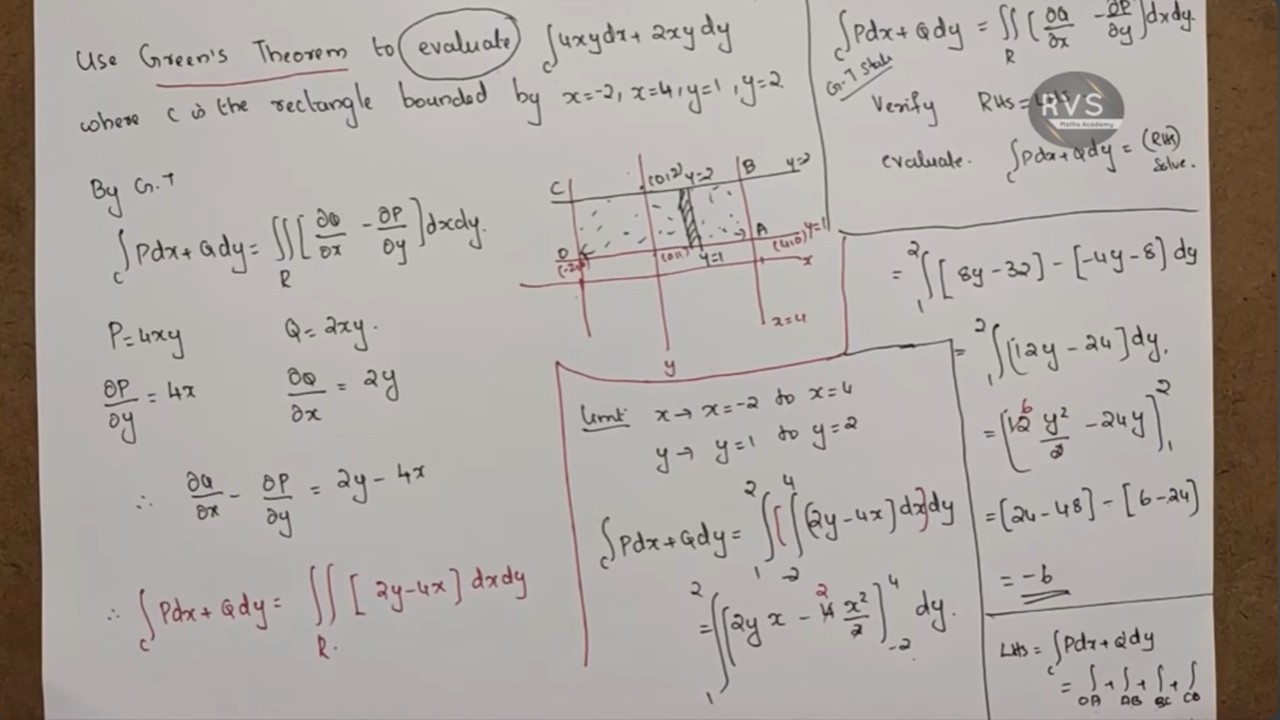 Use Green's Theorem to evaluate ∫_C 4xydx + 2xy dy
where C is the rectangle bounded by x=-2, x=4, y=1, y=2
By G.T
∫_C Pdx + Qdy = ∬_R [∂Q/∂x - ∂P/∂y] dxdy.
P=4xy Q=2xy.
∂P/∂y = 4x ∂Q/∂x = 2y
∴ ∂Q/∂x - ∂P/∂y = 2y - 4x
∴ ∫_C Pdx + Qdy = ∬_R [2y-4x] dxdy
C (0,2) y=2 B y=2
D A y=1
(0,1) y=1 (4,0) x
x=4
y
Limit: x → x=-2 to x=4
y → y=1 to y=2
∫_C Pdx + Qdy = ∫_1^2 [∫_-2^4 (2y-4x] dx] dy
= ∫_1^2 [2y x - 4 x²/2]_-2^4 dy.
2
∫_C Pdx + Qdy = ∬_R [∂Q/∂x - ∂P/∂y] dxdy.
Verify RHS =
RVS
Maths Academy
evaluate. ∫_C Pdx + Qdy = (RHS)
Solve.
= ∫_1^2 [8y-32] - [-4y-8] dy
= ∫_1^2 [12y - 24] dy.
= [12 y²/2 - 24y]_1^2
6
= [24-48] - [6-24]
= -6
LHS = ∫_C Pdx + Qdy
= ∫_OA + ∫_AB + ∫_BC + ∫_CO